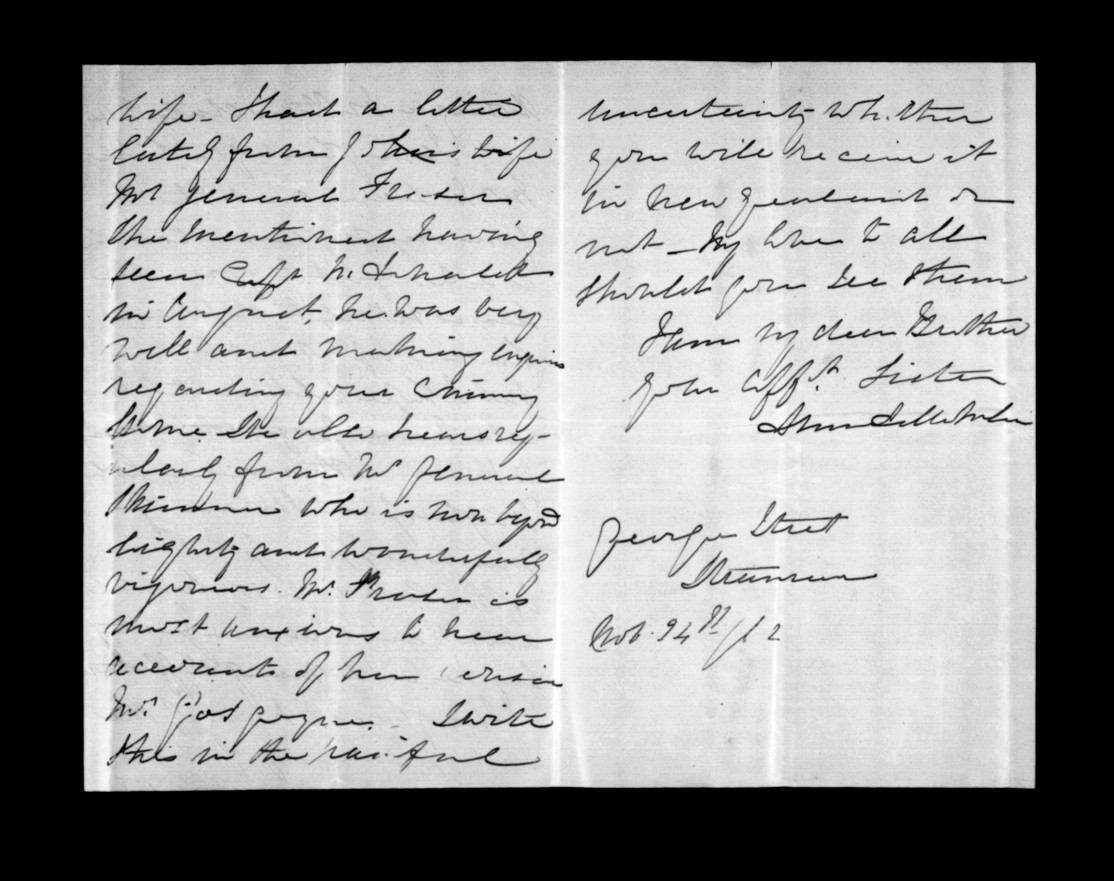 wife - I had a letter
lately from John's wife
Mrs General Fraser
She mentioned having
seen Capt.
in August, he was very
well and making
regarding your coming
home. She also hears reg-
ularly from Mrs General
Skinner who is now beyond
eighty and wonderfully
vigorous. Mrs Fraser is
most anxious to hear
accounts of her cousin
Mrs Gascoyne. I write
this in the painful
uncertainty whether
you will receive it
in New Zealand or
not - My love to all
should you see them
I am my dear Brother
your afft. Sister
George Street
Nov. 24th /62